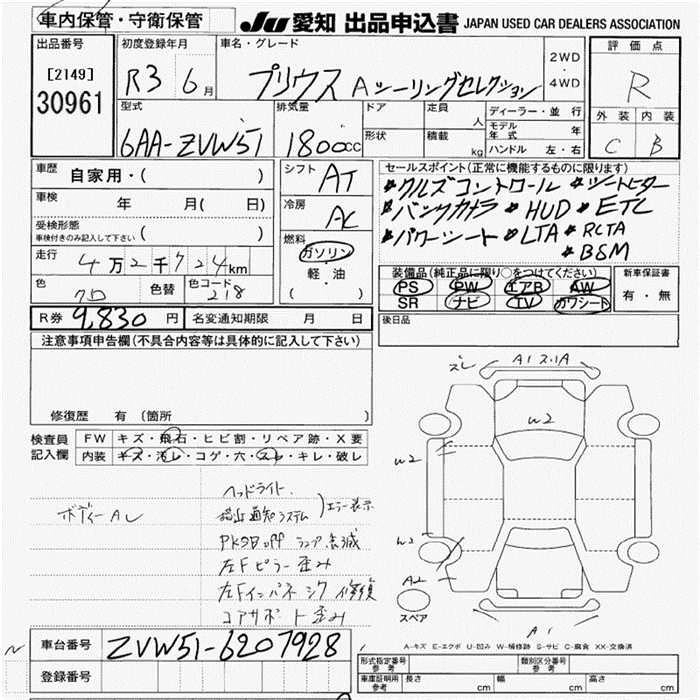 車内保管・守衛保管
JU 愛知 出品申込書 JAPAN USED CAR DEALERS ASSOCIATION
出品番号
[2149]
30961
初度登録年月
R3 6月
車名・グレード
プリウス Aツーリングセレクション
2WD
・
4WD
評価点
R
外装 内装
C B
型式
6AA-ZVW51
排気量
1800cc
ドア
形状
定員 人
積載 kg
ディーラー・並行
モデル年式 年
ハンドル 左・右
車歴
自家用・( )
車検
年 月( 日)
受検形態
車検付きのみ記入して下さい ( )
走行
4万2千724km
色
色替
色コード
218
シフト
AT
冷房
AC
燃料
ガソリン
軽・油
( )
セールスポイント(正常に機能するものに限ります)
*クルズコントロール *シートヒーター
*バックカメラ *HUD *ETC
*パワーシート *LTA *RCTA
*BSM
装備品(純正品に限り○をつけてください)
PS PW エアB AW
SR ナビ TV カワシート
新車保証書
有・無
R券 9,830円
名変通知期限 月 日
後日品
注意事項申告欄(不具合内容等は具体的に記入して下さい)
修復歴 有(箇所 )
検査員
記入欄
FW キズ・飛石・ヒビ割・リペア跡・X要
内装 キズ・汚レ・コゲ・穴・スレ・キレ・破レ
ボディーAL
ヘッドライト
接近通知システム
エラー表示
PKSB off ランプ点滅
左Fピラー歪み
左Fインパネ シワ 修復
コアサポート歪み
ズレ
A1 ス.1A
W2
W2
W2
A2
スペア
A1
A-キズ E-エクボ U-凹み W-補修跡 S-サビ C-腐食 XX-交換済
車台番号
ZVW51-6207928
登録番号
形式指定番号 参考
類別区分番号 参考
車庫証明用 参考
長さ cm
幅 cm
高さ cm